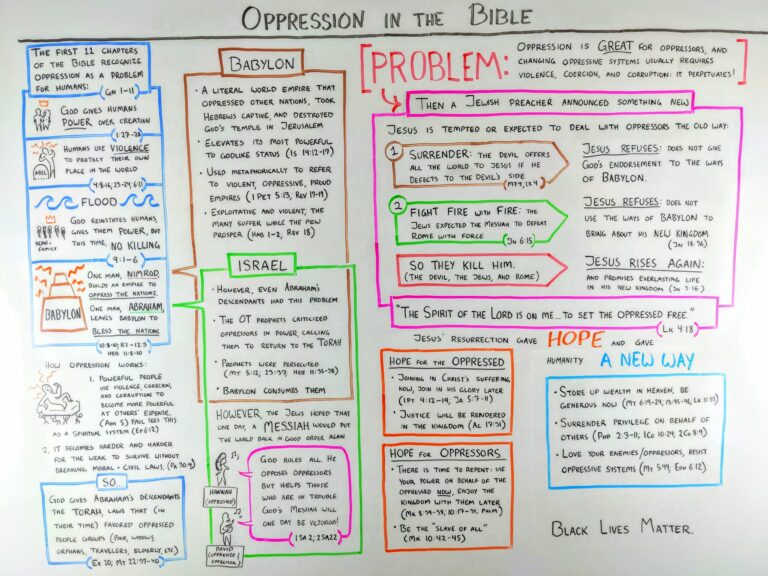 OPPRESSION IN THE BIBLE
THE FIRST 11 CHAPTERS
OF THE BIBLE RECOGNIZE
OPPRESSION AS A PROBLEM
FOR HUMANS:
(GN 1-11)
GOD GIVES HUMANS
POWER OVER CREATION
(1:27-28)
HUMANS USE VIOLENCE
TO PROTECT THEIR OWN
PLACE IN THE WORLD
ABEL
(4:8-16, 23-24, 6:11)
FLOOD
GOD REINSTATES HUMANS,
GIVES THEM POWER, BUT
THIS TIME, NO KILLING
NOAH+
FAMILY
9:1-6
ONE MAN, NIMROD,
BUILDS AN EMPIRE TO
OPPRESS THE NATIONS.
ONE MAN, ABRAHAM,
LEAVES BABYLON TO
BLESS THE NATIONS
BABYLON
HEB 11:8-10
HOW OPPRESSION WORKS:
1. POWERFUL PEOPLE
USE VIOLENCE, COERCION,
AND CORRUPTION TO
BECOME MORE POWERFUL
AT OTHERS' EXPENSE.
(AM 5) PAUL SEES THIS
AS A SPIRITUAL SYSTEM (EPH 6:12)
2. IT BECOMES HARDER AND HARDER
FOR THE WEAK TO SURVIVE WITHOUT
BREAKING MORAL + CIVIL LAWS. (PR 30:9)
SO...
GOD GIVES ABRAHAM'S DESCENDANTS
THE TORAH, LAWS THAT (IN
THEIR TIME) FAVORED OPPRESSED
PEOPLE GROUPS (POOR, WIDOWS
ORPHANS, TRAVELERS, ELDERLY, ETC)
(EX 20; MT 22:37-40)
BABYLON
• A LITERAL WORLD EMPIRE THAT
OPPRESSED OTHER NATIONS, TOOK
HEBREWS CAPTIVE, AND DESTROYED
GOD'S TEMPLE IN JERUSALEM
• ELEVATES ITS MOST POWERFUL
TO GODLIKE STATUS (IS 14:12-17)
• USED METAPHORICALLY TO REFER
TO VIOLENT, OPPRESSIVE, PROUD
EMPIRES (1 PET 5:13, REV 17-19)
• EXPLOITATIVE AND VIOLENT, THE
MANY SUFFER WHILE THE FEW
PROSPER (HAB 1-2, REV 18)
ISRAEL
• HOWEVER, EVEN ABRAHAM'S
DESCENDANTS HAD THIS PROBLEM
• THE OT PROPHETS CRITICIZED
OPPRESSORS IN POWER, CALLING
THEM TO RETURN TO THE TORAH
• PROPHETS WERE PERSECUTED
(MT 5:12, 23:37, HEB 11:35-38)
• BABYLON CONSUMES THEM
HOWEVER, THE JEWS HOPED THAT
ONE DAY, A MESSIAH WOULD PUT
THE WORLD BACK IN GOOD ORDER AGAIN
HANNAH
(OPPRESSED)
DAVID
(OPPRESSED/
OPPRESSOR)
GOD RULES ALL. HE
OPPOSES OPPRESSORS
BUT HELPS THOSE
WHO ARE IN TROUBLE.
GOD'S MESSIAH WILL
ONE DAY BE VICTORIOUS!
(1 SA 2, 2 SA 22)
PROBLEM:
OPPRESSION IS GREAT FOR OPPRESSORS, AND
CHANGING OPPRESSIVE SYSTEMS USUALLY REQUIRES
VIOLENCE, COERCION, AND CORRUPTION. IT PERPETUATES!
THEN A JEWISH PREACHER ANNOUNCED SOMETHING NEW
JESUS IS TEMPTED OR EXPECTED TO DEAL WITH OPPRESSORS THE OLD WAY:
1 SURRENDER: THE DEVIL OFFERS
ALL THE WORLD TO JESUS IF HE
DEFECTS TO THE DEVIL'S SIDE
(MT 4, LK 4)
JESUS REFUSES: DOES NOT GIVE
GOD'S ENDORSEMENT TO THE WAYS
OF BABYLON.
2 FIGHT FIRE WITH FIRE: THE
JEWS EXPECTED THE MESSIAH TO DEFEAT
ROME WITH FORCE
(JN 6:15)
JESUS REFUSES: DOES NOT
USE THE WAYS OF BABYLON TO
BRING ABOUT HIS NEW KINGDOM
(JN 18:36)
SO THEY KILL HIM.
(THE DEVIL, THE JEWS, AND ROME)
JESUS RISES AGAIN:
AND PROMISES EVERLASTING LIFE
IN HIS NEW KINGDOM (JN 3:16)
"THE SPIRIT OF THE LORD IS ON ME... TO SET THE OPPRESSED FREE."
(LK 4:18)
JESUS' RESURRECTION GAVE HOPE AND GAVE
HUMANITY A NEW WAY
HOPE FOR THE OPPRESSED
• JOINING IN CHRIST'S SUFFERING
NOW, JOIN IN HIS GLORY LATER
(1 PT 4:12-19, JA 5:7-11)
• JUSTICE WILL BE RENDERED
IN THE KINGDOM (AC 17:31)
HOPE FOR OPPRESSORS
• THERE IS TIME TO REPENT: USE
YOUR POWER ON BEHALF OF
THE OPPRESSED NOW, ENJOY THE
KINGDOM WITH THEM LATER
(MK 8:34-38, 10:17-31, PHLM)
• BE THE "SLAVE OF ALL"
(MK 10:42-45)
• STORE UP WEALTH IN HEAVEN, BE
GENEROUS NOW (MT 6:19-24, 13:45-46, LK 11:33)
• SURRENDER PRIVILEGE ON BEHALF
OF OTHERS (PHP 2:3-11, 1CO 10:24, 2CO 8:9)
• LOVE YOUR ENEMIES/OPPRESSORS, RESIST
OPPRESSIVE SYSTEMS (MT 5:44, EPH 6:12)
BLACK LIVES MATTER.